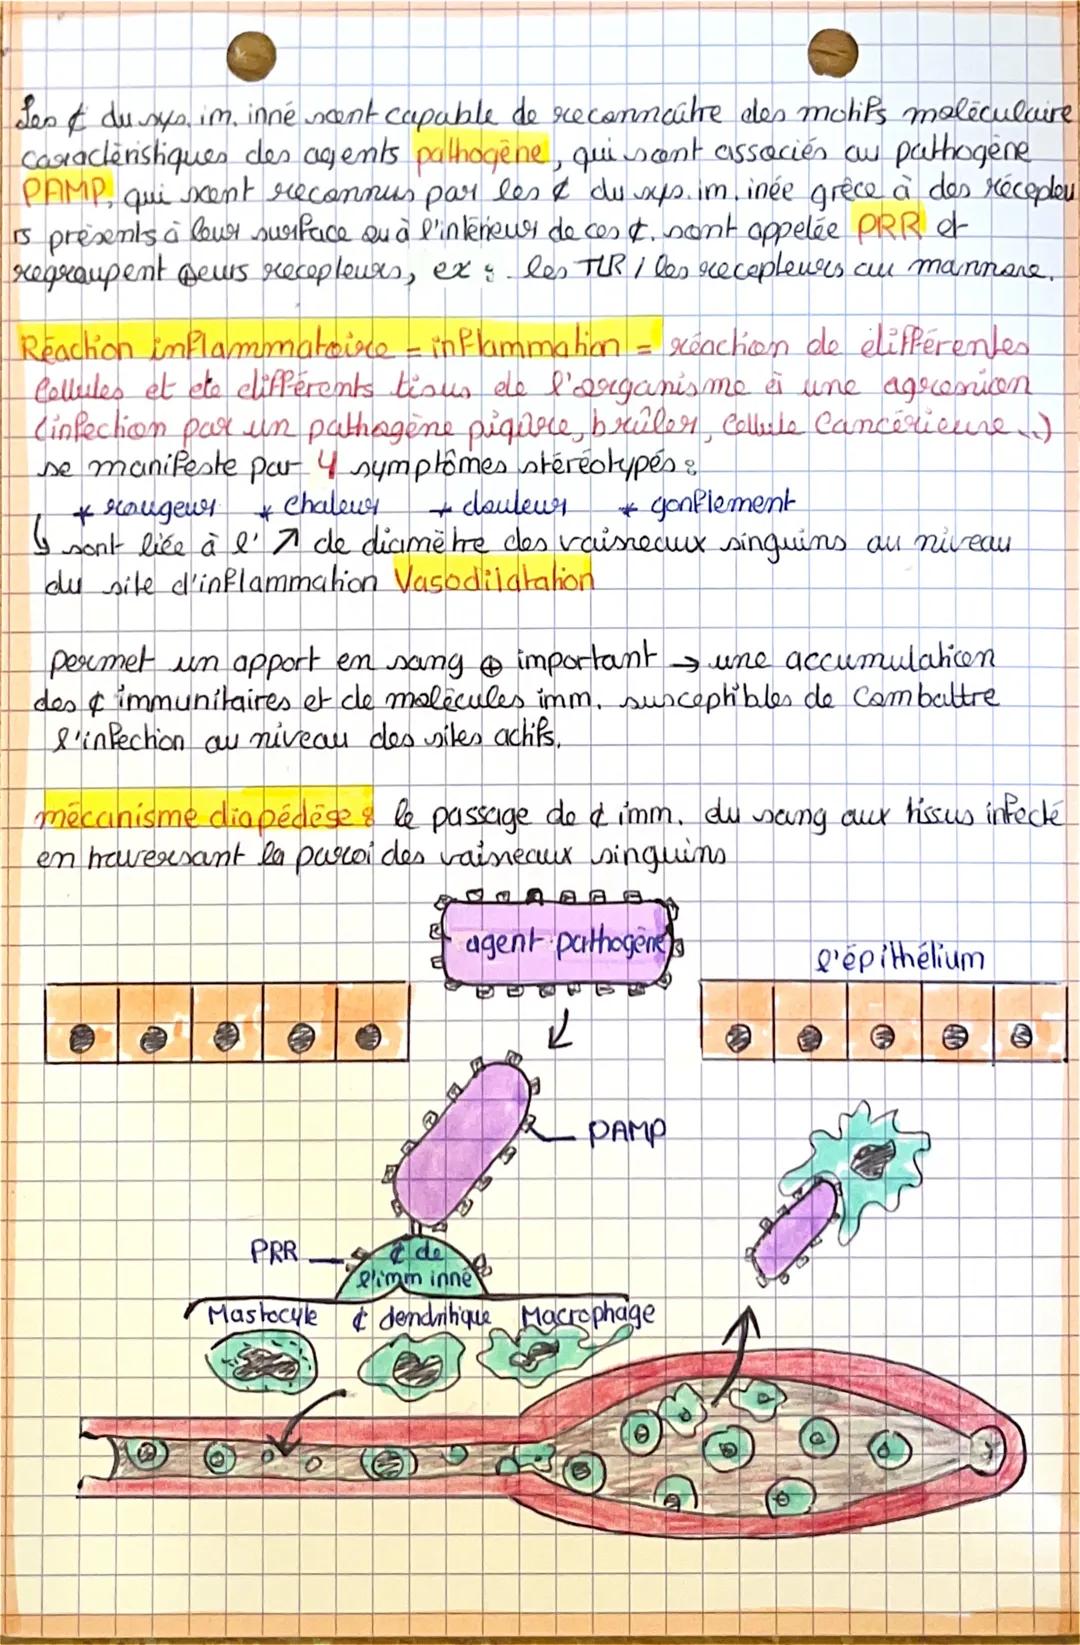 Les ¢ du sys. im. inné sont capable de reconnaître des motifs moléculaire
caractéristiques des agents pathogène, qui sont associés au pathogène
PAMP, qui sont reconnus par les ¢ du sys. im. inée grêce à des récepteu
rs présents à leur surface ou à l'intérieur de ces ¢. sont appelée PRR et
regroupent ⊕eurs recepteurs, ex : les TLR / les recepteurs au mannose.
Réaction inflammatoire = inflammation = réaction de différentes
Cellules et de différents tissus de l'organisme à une agression
(infection par un pathogène piqûre, brûler, Cellule Cancérieuse...)
se manifeste par 4 symptômes stéréotypés :
* rougeur * chaleur + douleur * gonflement
↳ sont liée à l' ↗ de diamètre des vaisseaux singuins au niveau
du site d'inflammation Vasodilatation
permet un apport en sang ⊕ important → une accumulation
des ¢ immunitaires et de molécules imm. susceptibles de Combattre
l'infection au niveau des sites actifs.
mécanisme diapédèse : le passage de ¢ imm. du sang aux tissus infecté
en traversant la paroi des vaisseaux singuins
agent pathogène
l'épithélium
PAMP
PRR
¢ de
l'imm inné
Mastocyte ¢ dendritique Macrophage